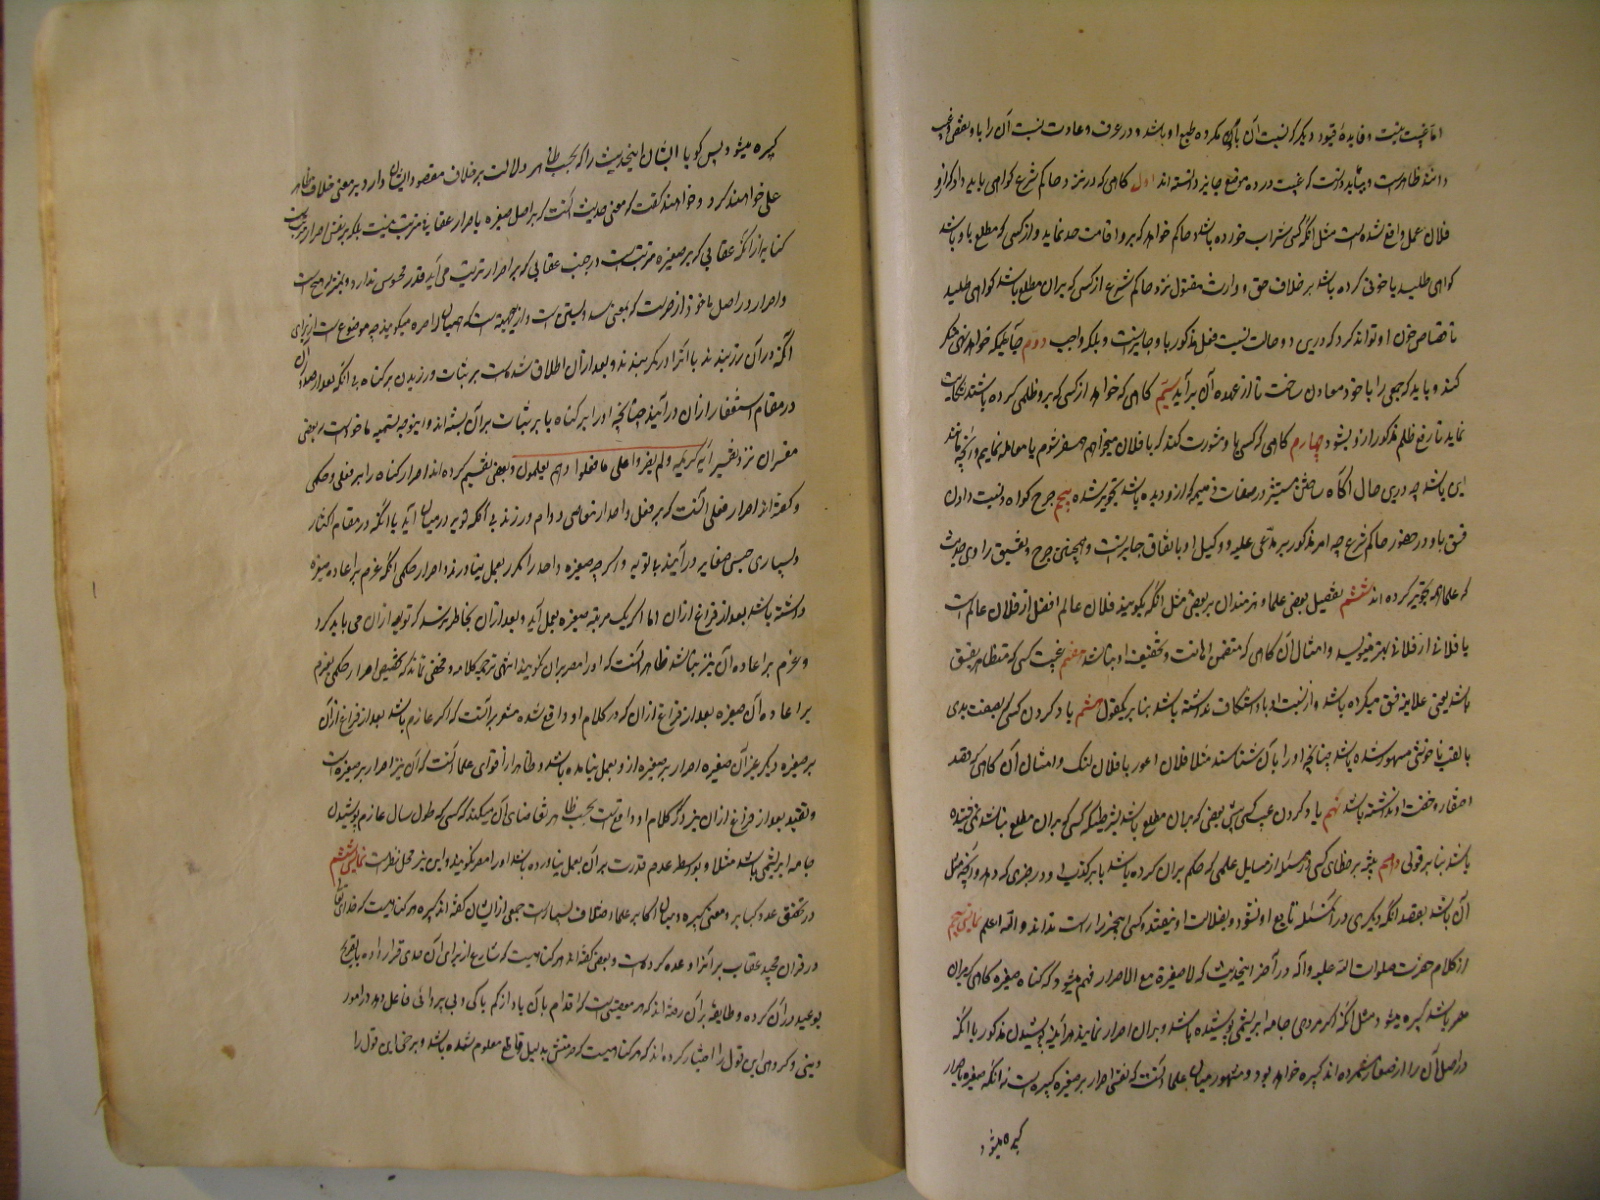 اما غیبت نیست و فایدهٔ قیود دیگر که نسبت آن باو مکروه طبع او باشد و در عرف و عادت نسبت آن را باو نقص و عیب
دانند ظاهرست و بباید دانست که غیبت در ده موضع جایز دانسته‌اند اول کاهی که در نزد حاکم شرع کواهی باید داد که از و
فلان عمل واقع شده است مثل انکه کسی شراب خورده باشد و حاکم خواهد که برو اقامت حد نماید و از کسی که مطلع باو باشد
کواهی طلبد یا خونی کرده باشد بر خلاف حق و وارث مقتول نزد حاکم شرع از کسی که بران مطلع باشد کواهی طلبد
تا قصاص خون او تواند کرد که درین دو حالت نسبت فعل مذکور باو جایزست و بلکه واجب دوم جائیکه خواهد نهی منکر
کند و باید که جمعی را با خود معاون ساخت تا از عهدهٔ آن برآید سیم کاهی که خواهد از کسی که برو ظلمی کرده باشند شکایت
نماید تا رفع ظلم مذکور ازو بشود چهارم کاهی که کسی با و مشورت کند که با فلان میخواهم همسفر شوم یا معامله نمایم و آنچه مانند
این باشد چه درین حال آکاه ساختن مستشیر در صفات ذمیمه که ازو دیده باشد تجویز شده پنجم جرح کواه و نسبت دادن
فسق باو در حضور حاکم شرع چه امر مذکور بر مدعی علیه و وکیل او باتفاق جایزست و همچنین جرح و تفسیق راوی حدیث
که علما همه تجویز کرده اند ششم تفضیل بعضی علما و هنرمندان بر بعضی مثل انکه بکویند فلان عالم افضل از فلان عالم است
یا فلانی از فلانی بهتر مینویسد و امثال آن کاهی که متضمن اهانت و تخفیف او نباشد هفتم غیبت کسی که متظاهر بفسق
باشد یعنی علانیه فسق میکرده باشد و از نسبت او باو استنکاف نداشته باشد بنا بر یکقول هشتم یاد کردن کسی بصفت بدی
یا لقب ناخوشی مشهور شده باشد چنانچه او را بآن شناسند مثلا فلان اعور یا فلان لنک و امثال آن کاهی که قصد
احقار و خفت او نداشته باشد نهم یاد کردن عیب کسی پیش بعضی که بران مطلع باشد بشرطیکه کسی که بران مطلع نباشد نمی‌شنیده
باشد بنا بر قولی دهم تنبیه بر خطای کسی در مسئله از مسایل علمی که حکم بران کرده باشد یا بر کذب او در چیزی که دهد و آنچه مثل
آن باشد بقصد انکه دیکری در آن مسئله تابع او نشود و بضلالت او نیفتد و کسی آنچیز را راست نداند و الله اعلم نمایش پنجم
از کلام حضرت صلوات الله علیه و اله در آخر اینحدیث که لا صغیرة مع الاصرار فهم میشود که کناه صغیره کاهی که بران
مصر باشد کبیره میشود مثل انکه اکر مردی جامه ابریشمی پوشیده باشد و بران اصرار نماید هرآینه پوشیدن مذکور با انکه
در اصل آن را از صغایر شمرده اند کبیره خواهد بود و مشهور میان علما آنست که نفس اصرار بر صغیره کبیره است نه انکه صغیره باصرار
کبیره میشود
کبیره میشود پس کویا ایشان اینحدیث را که بحسب ظاهر دلالت بر خلاف مقصود ایشان دارد بر معنی خلاف ظاهر
علی خواهند کرد و خواهند کفت که معنی حدیث آنست که بر اصل صغیره با اصرار عقابی مترتب نیست بلکه بر نفس اصرار مرتبست
کنایه از انکه عقابی که بر صغیره مترتبست در جنب عقابی که بر اصرار ترتیب می آید قدر محسوسی ندارد و بمنزلهٔ هیچ است
و اصرار در اصل ماخوذ از صرست که بمعنی سد و بستن است و ازینجهة است که همیان را صره میکویند چه موضوع است از برای
آنکه در آن زر نهند یا آنرا در کمر ببندند و بعد از آن اطلاق شده است بر ثبات ورزیدن بر کناه بی انکه بعد از صدور آن
در مقام استغفار ازان درآیند چنانچه او را بر کناه یا بر ثبات بران بسته اند و اینوجه تسمیه ماخوذست بعضی
مفسران نزد تفسیر آیه کریمه ولم یصروا علی ما فعلوا وهم یعلمون و بعضی تقسیم کرده اند اصرار کناه را بر فعلی و حکمی
و کفته اند اصرار فعلی آنست که بر فعل واحد از معاصی دوام ورزند بی آنکه توبه در میان آید یا انکه در مقام اکثار
و بسیاری جنس صغایر درآیند بلا توبه و اکر چه صغیره واحد را مکرر بعمل نیاورند و اصرار حکمی انکه عزم بر اعاده صغیره
داشته باشد بعد از فراغ ازان اما اکر یک مرتبه صغیره بعمل آید و بعد ازان بخاطر نرسد که توبه ازان می باید کرد
و عزم بر اعاده آن نیز نباشد ظاهر آنست که او را مصر بران نکویند انتهی ترجمه کلامه و مخفی نماند که تخصیص اصرار حکمی بعزم
بر اعاده آن صغیره بعد از فراغ ازان که در کلام او واقع شده مشعر برآنست که اکر عازم باشد بعد از فراغ از آن
بر صغیره دیکر غیر آن صغیره اصرار بر صغیره ازو بعمل نیامده باشد و ظاهر از فتوای علما آنست که آن نیز اصرار بر صغیره است
و تقیید بعد از فراغ ازان نیز در کلام او واقعست بحسب ظاهر تقاضای آن میکند که کسی که طول سال عازم پوشیدن
جامه ابریشمی باشد مثلا و بواسطه عدم قدرت بر آن بعمل نیاورده باشد او را مصر نکویند و این نیز محل نظرست نمایش ششم
در تحقیق عدد کبایر و معنی کبیره و میان اکابر علما اختلاف بسیارست جمعی از ایشان کفته اند کبیره هر کناهیست که خدای تعالی
در قران مجید عقاب بر آنرا وعده کرده است و بعضی کفته اند هر کناهیست که شارع از برای آن حدی قرار داده یا تصریح
بوعید در آن کرده و طایفه بر آن رفته اند که هر معصیتی ست که اقدام بآن یاد از کم باکی و بی پروائی فاعل دهد در امور
دینی و کروهی این قول را اختیار کرده اند که هر کناهیست که حرمتش بدلیل قاطع معلوم شده باشد و برخی این قول را